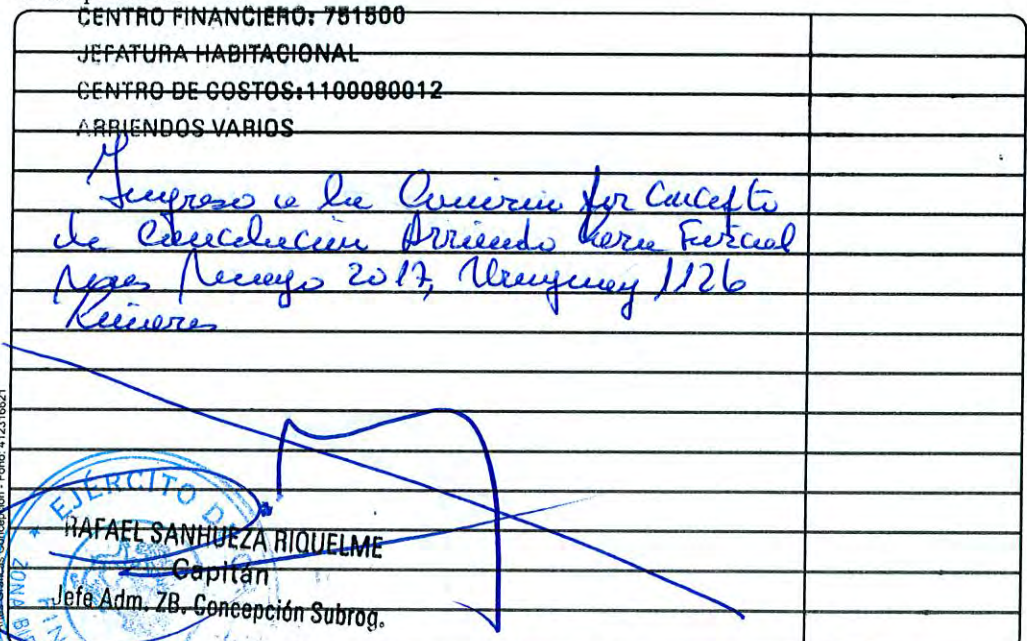 CENTRO FINANCIERO: 751500
JEFATURA HABITACIONAL
CENTRO DE COSTOS:1100080012
ARRIENDOS VARIOS
Ingreso a la por concepto
de cancelación Arriendo Fiscal
mes mayo 2017, Uruguay 1126
EJÉRCITO D
RAFAEL SANHUEZA RIQUELME
Capitán
Jefe Adm. ZB. Concepción Subrog.
ZONA
Concepción - Fono: 412316621